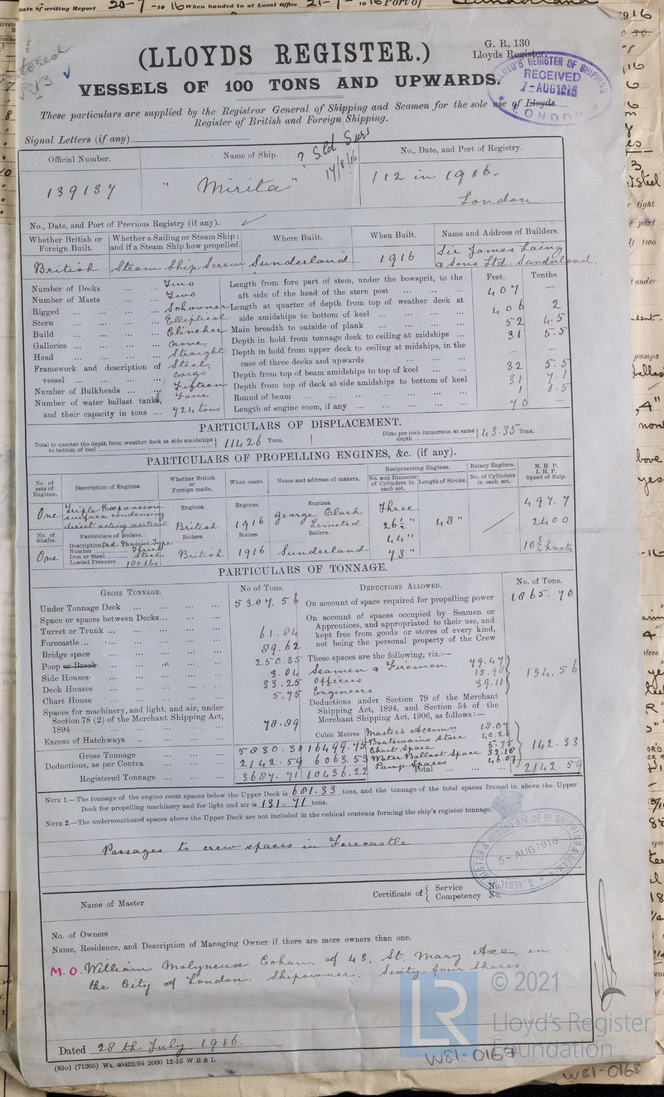 Date of writing Report 20-7-1916 When handed in at Local Office 21-7-1916 Port of Sunderland
(LLOYDS REGISTER.)
G. R. 130
Lloyds Register.
VESSELS OF 100 TONS AND UPWARDS.
LLOYD'S REGISTER OF SHIPPING
RECEIVED
7-AUG1916
LONDON
These particulars are supplied by the Registrar General of Shipping and Seamen for the sole use of Lloyds
Register of British and Foreign Shipping.
Signal Letters (if any)
Official Number.
Name of Ship.
No., Date, and Port of Registry.
139137
"Mirita"
112 in 1916.
London.
No., Date, and Port of Previous Registry (if any).
Whether British or Foreign Built.
Whether a Sailing or Steam Ship; and if a Steam Ship how propelled.
Where Built.
When Built.
Name and Address of Builders.
British
Steam Ship Screw
Sunderland
1916
Sir James Laing & Sons Ltd. Sunderland.
Number of Decks ... Two
Number of Masts ... Two
Rigged ... Schooner
Stern ... Elliptical
Build ... Clincher
Galleries ... None
Head ... Straight
Framework and description of vessel ... Steel, Cargo
Number of Bulkheads ... Fifteen
Number of water ballast tanks, and their capacity in tons ... Four 724 tons
Feet. Tenths
Length from fore part of stem, under the bowsprit, to the aft side of the head of the stern post ... 407 —
Length at quarter of depth from top of weather deck at side amidships to bottom of keel ... 406 2
Main breadth to outside of plank ... 52 4.5
Depth in hold from tonnage deck to ceiling at midships ... 31 5.5
Depth in hold from upper deck to ceiling at midships, in the case of three decks and upwards —
Depth from top of beam amidships to top of keel ... 32 5.5
Depth from top of deck at side amidships to bottom of keel 31 7.1
Round of beam ... 1 0.5
Length of engine room, if any ... 70
PARTICULARS OF DISPLACEMENT.
Total to quarter the depth from weather deck at side amidships to bottom of keel 11426 Tons.
Ditto per inch immersion at same depth 43.35 Tons.
PARTICULARS OF PROPELLING ENGINES, &c. (if any).
No. of sets of Engines.
Description of Engines.
Whether British or Foreign made.
When made.
Name and address of makers.
Reciprocating Engines.
No. and Diameter of Cylinders in each set.
Length of Stroke.
Rotary Engines.
No. of Cylinders in each set.
N. H. P.
I. H. P.
Speed of Ship.
One
Triple Expansion surface condensing direct acting vertical
Engines.
British
Engines.
1916
Engines.
George Clark Limited
Three
26½"
44"
73"
48"
497.7
2400
10¾ knots
No. of Shafts.
One
Particulars of Boilers.
Number Three
Iron or Steel Steel
Loaded Pressure
Boilers.
British
Boilers
1916
Boilers.
Sunderland
PARTICULARS OF TONNAGE.
GROSS TONNAGE.
No of Tons.
DEDUCTIONS ALLOWED.
No. of Tons.
Under Tonnage Deck ... 5307.56
Space or spaces between Decks...
Turret or Trunk ... 61.04
Forecastle ... 89.62
Bridge space
Poop or Break 250.35
Side Houses 3.04
Deck Houses 33.25
Chart House 5.75
Spaces for machinery, and light, and air, under Section 78 (2) of the Merchant Shipping Act, 1894 ... 78.89
Excess of Hatchways
On account of space required for propelling power 1865.70
On account of spaces occupied by Seamen or Apprentices, and appropriated to their use, and kept free from goods or stores of every kind, not being the personal property of the Crew
These spaces are the following, viz:—
Seamen & Firemen 79.47
Officers 15.98
Engineers 39.11
134.56
Deductions under Section 79 of the Merchant Shipping Act, 1894, and Section 54 of the Merchant Shipping Act, 1906, as follows:—
Cubic Metres
Master's Accomn
Boatswains Store
Chart Space 5.75
Water Ballast Space
Pump Spaces 46.07
142.33
Total ... 2142.59
Gross Tonnage ... 5830.30 16499.75
Deductions, as per Contra ... 2142.59 6063.53
Registered Tonnage ... 3687.71 10436.22
NOTE 1.—The tonnage of the engine room spaces below the Upper Deck is 601.33 tons, and the tonnage of the total spaces framed in above the Upper
Deck for propelling machinery and for light and air is 131.71 tons.
NOTE 2.—The undermentioned spaces above the Upper Deck are not included in the cubical contents forming the ship's register tonnage.
Passages to crew spaces in Forecastle
5-AUG1916
Name of Master
Certificate of { Service No. Competency No.
No. of Owners
Name, Residence, and Description of Managing Owner if there are more owners than one.
M.O. William Molyneux Cohan, of 48, St. Mary Axe, in
the City of London. Shipowner. Sixty-four Shares
Dated 28th July, 1916.
(830) (71265) Wt. 40422/94 2000 12-15 W B & L
LR
© 2021
Lloyd's Register
Foundation
W81-0167
W81-0168